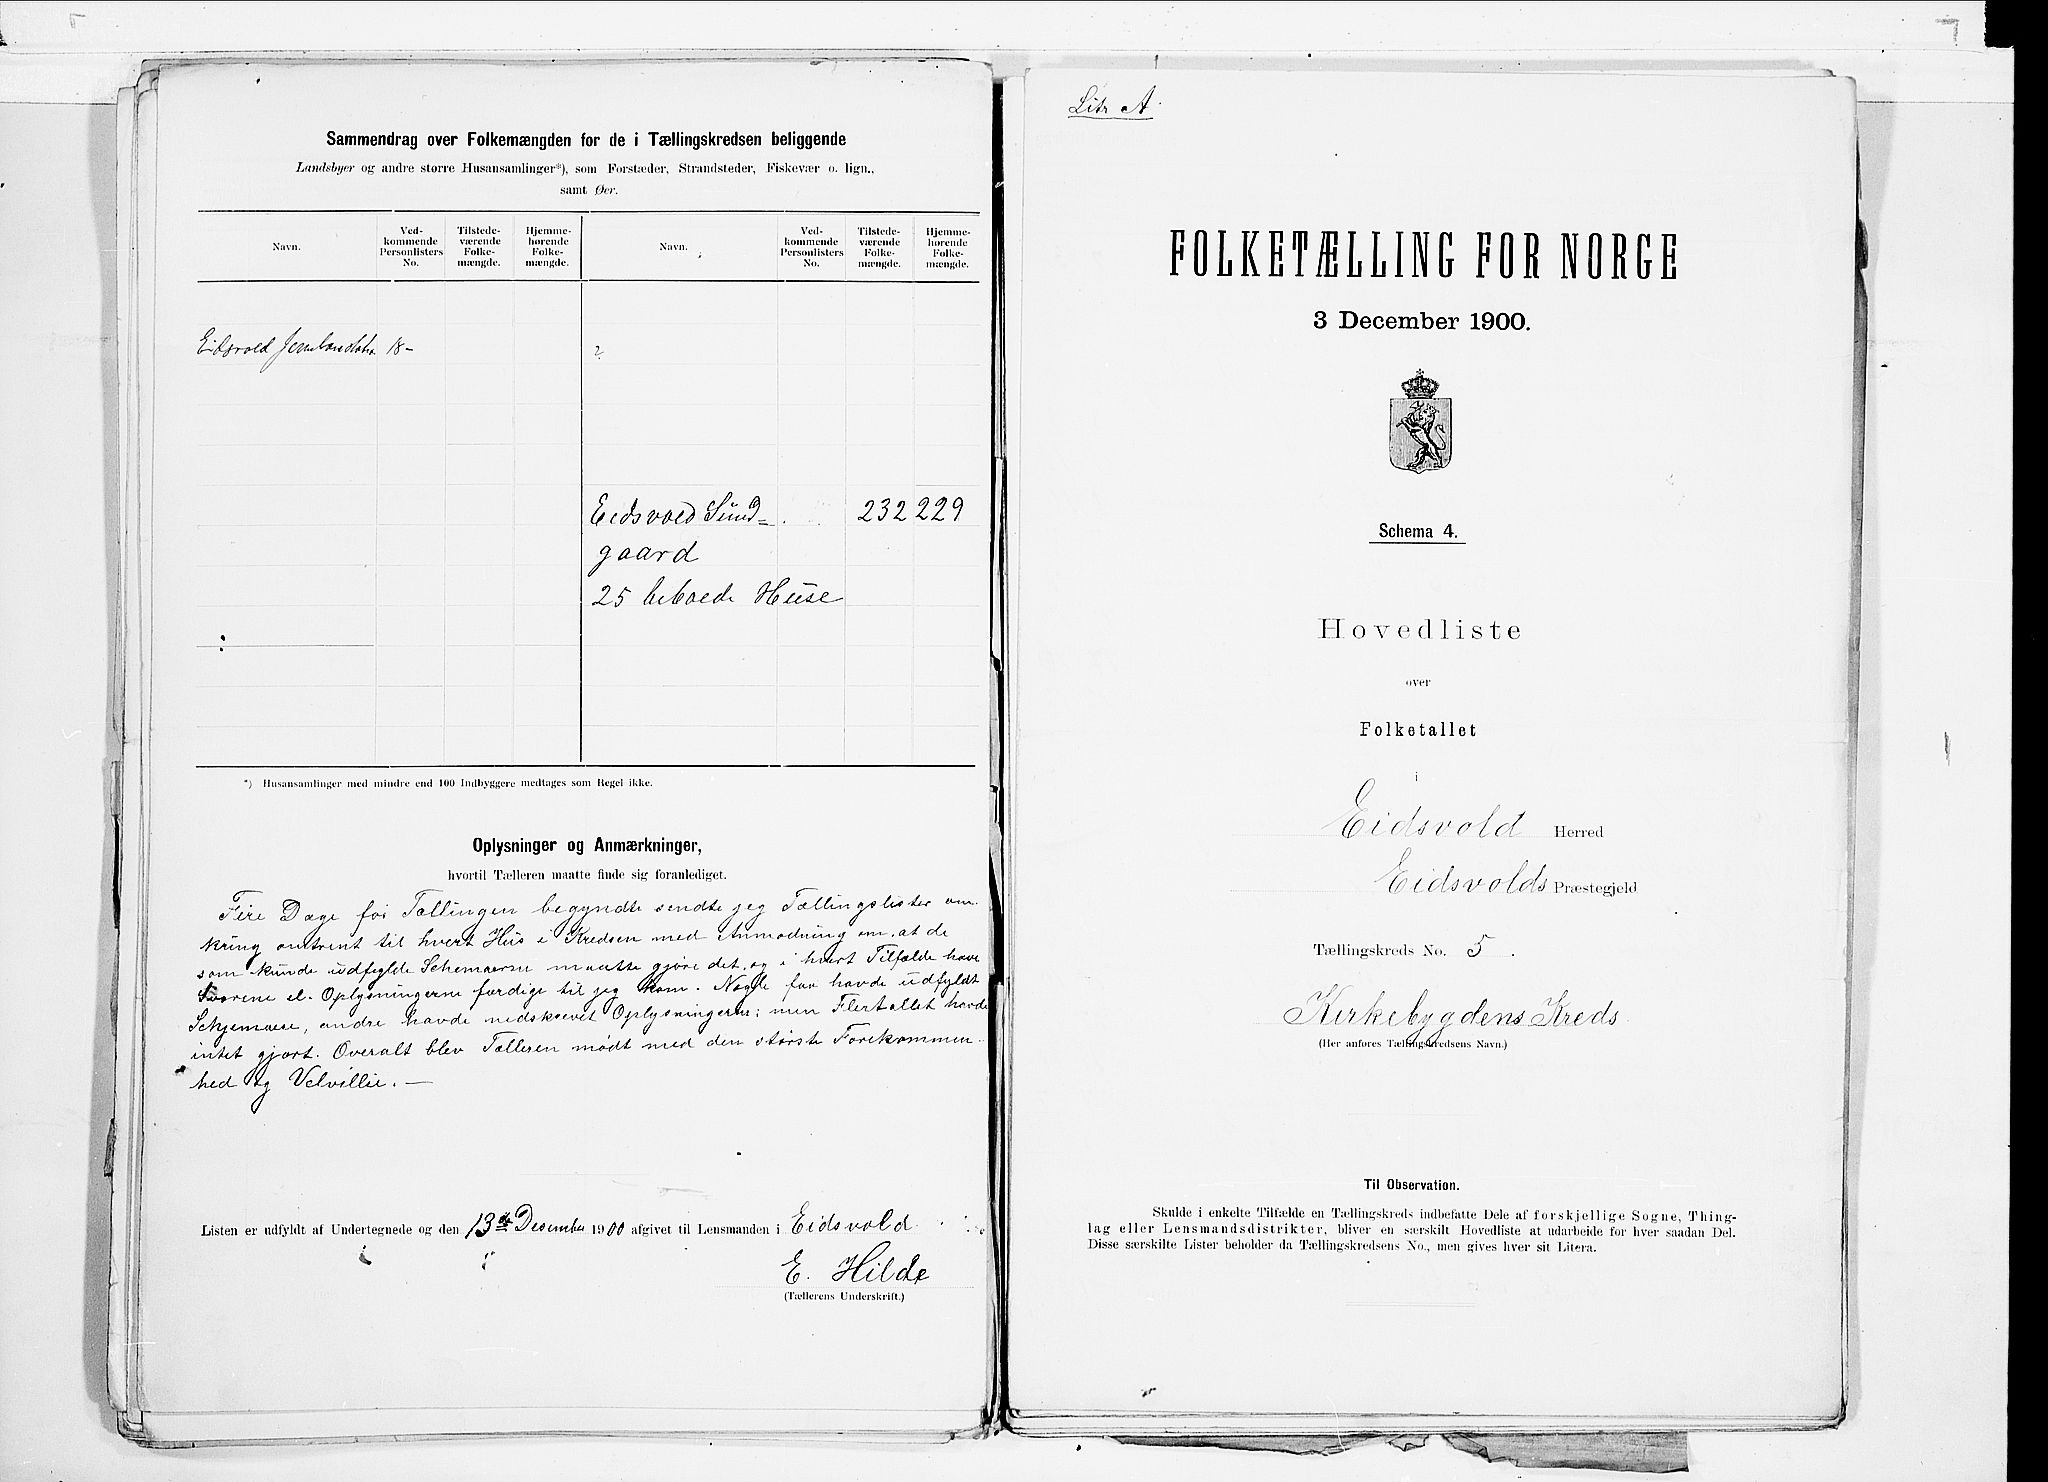 Sammendrag over Folkemængden for de i Tællingskredsen beliggende
Landsbyer og andre større Husansamlinger*), som Forstæder, Strandsteder, Fiskevær o. lign.,
samt Øer.
Navn. Ved-kommende Personlisters No. Tilstede-værende Folke-mængde. Hjemme-hørende Folke-mængde. Navn. Ved-kommende Personlisters No. Tilstede-værende Folke-mængde. Hjemme-hørende Folke-mængde.
Eidsvold 18- ?
Eidsvold Sund= 232 229
gaard
25 beboede Huse
*) Husansamlinger med mindre end 100 Indbyggere medtages som Regel ikke.
Oplysninger og Anmærkninger,
hvortil Tælleren maatte finde sig foranlediget.
Fire Dage før Tællingen begyndte sendte jeg Tællingslister om-
kring omtrent til hvert Hus i Kredsen med Anmodning om, at de
som kunde udfylde Schemaerne maatte gjøre det, og i hvert Tilfælde have
Svarene el. Oplysningerne færdige til jeg kom. Nogle faa havde udfyldt
Schemaene, andre havde nedskrevet Oplysningerne; men Flertallet havde
intet gjort. Overalt blev Tælleren mødt med den største Forekommen-
hed og Velvillie. —
Listen er udfyldt af Undertegnede og den 13de Desember 1900 afgivet til Lensmanden i Eidsvold
E. Hilde
(Tællerens Underskrift.)
Litr A.
FOLKETÆLLING FOR NORGE
3 December 1900.
Schema 4.
Hovedliste
over
Folketallet
i
Eidsvold Herred
Eidsvolds Præstegjeld
Tællingskreds No. 5.
Kirkebygdens Kreds.
(Her anføres Tællingskredsens Navn.)
Til Observation.
Skulde i enkelte Tilfælde en Tællingskreds indbefatte Dele af forskjellige Sogne, Thing-
lag eller Lensmandsdistrikter, bliver en særskilt Hovedliste at udarbeide for hver saadan Del.
Disse særskilte Lister beholder da Tællingskredsens No., men gives hver sit Litera.